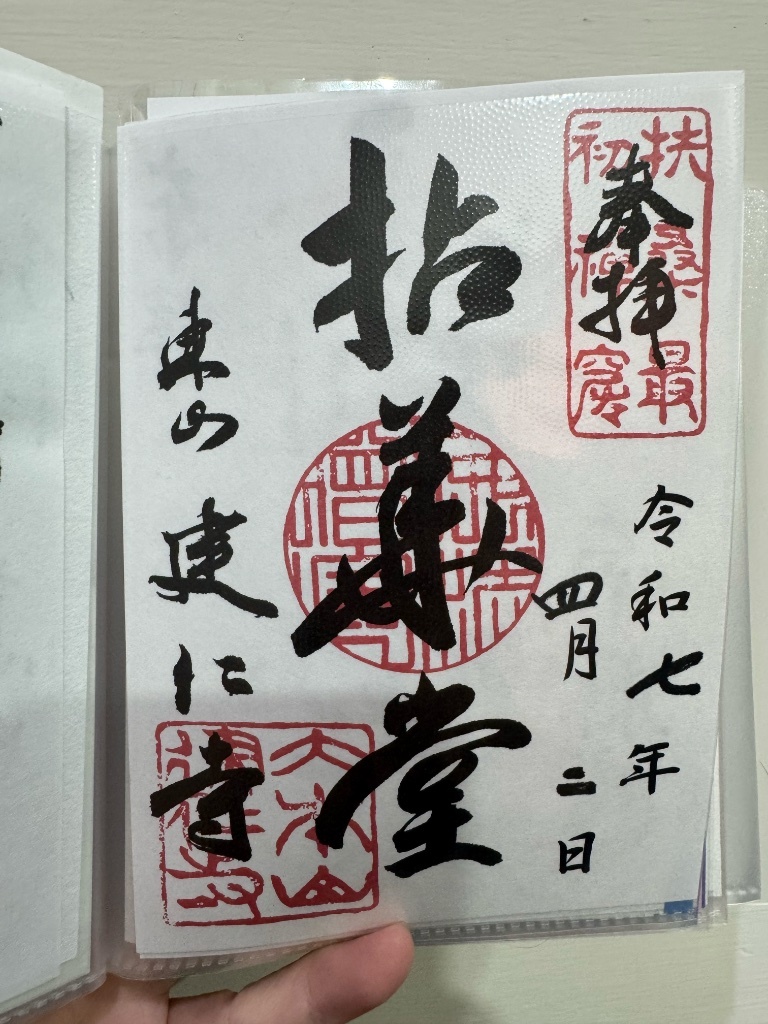 扶桑最
初禪窟
奉拝
令和七年
四月二日
拈華堂
東山建仁寺
大本山
建仁寺